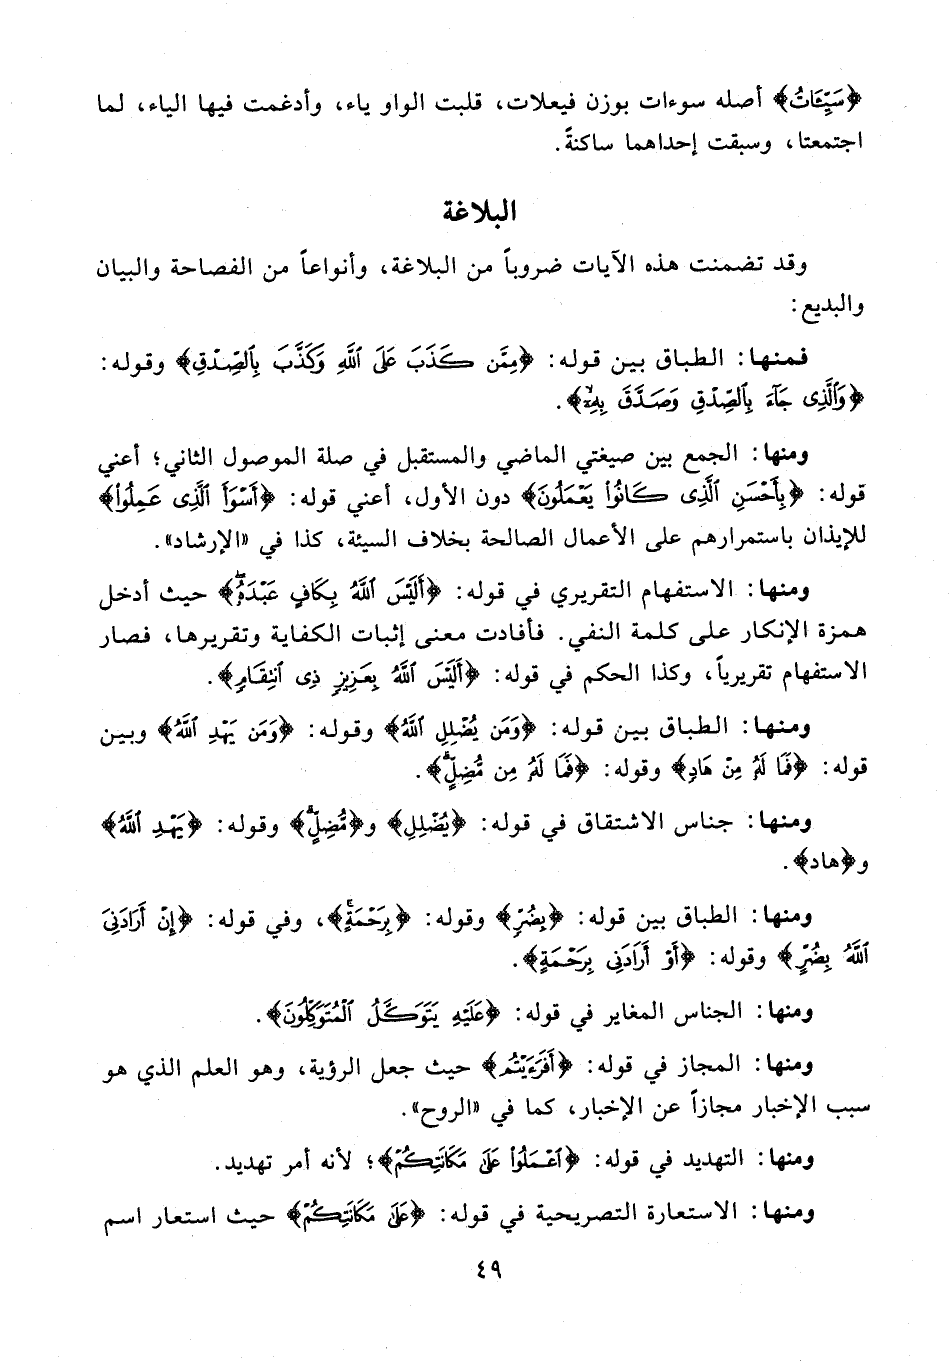 ﴿سَيِّئَاتُ﴾ أصله سوءات بوزن فيعلات، قلبت الواو ياء، وأدغمت فيها الياء، لما
اجتمعتا، وسبقت إحداهما ساكنةً.
البلاغة
وقد تضمنت هذه الآيات ضروباً من البلاغة، وأنواعاً من الفصاحة والبيان
والبديع:
فمنها: الطباق بين قوله: ﴿مِمَّن كَذَبَ عَلَى ٱللَّهِ وَكَذَّبَ بِٱلصِّدْقِ﴾ وقوله:
﴿وَٱلَّذِى جَآءَ بِٱلصِّدْقِ وَصَدَّقَ بِهِۦٓ﴾.
ومنها: الجمع بين صيغتي الماضي والمستقبل في صلة الموصول الثاني؛ أعني
قوله: ﴿بِأَحْسَنِ ٱلَّذِى كَانُوا۟ يَعْمَلُونَ﴾ دون الأول، أعني قوله: ﴿أَسْوَأَ ٱلَّذِى عَمِلُوا۟﴾
للإيذان باستمرارهم على الأعمال الصالحة بخلاف السيئة، كذا في «الإرشاد».
ومنها: الاستفهام التقريري في قوله: ﴿أَلَيْسَ ٱللَّهُ بِكَافٍ عَبْدَهُۥۖ﴾ حيث أدخل
همزة الإنكار على كلمة النفي. فأفادت معنى إثبات الكفاية وتقريرها، فصار
الاستفهام تقريرياً، وكذا الحكم في قوله: ﴿أَلَيْسَ ٱللَّهُ بِعَزِيزٍ ذِى ٱنتِقَامٍ﴾.
ومنها: الطباق بين قوله: ﴿وَمَن يُضْلِلِ ٱللَّهُ﴾ وقوله: ﴿وَمَن يَهْدِ ٱللَّهُ﴾ وبين
قوله: ﴿فَمَا لَهُۥ مِنْ هَادٍ﴾ وقوله: ﴿فَمَا لَهُۥ مِن مُّضِلٍّۗ﴾.
ومنها: جناس الاشتقاق في قوله: ﴿يُضْلِلِ﴾ و﴿مُّضِلٍّۗ﴾ وقوله: ﴿يَهْدِ ٱللَّهُ﴾
و﴿هاد﴾.
ومنها: الطباق بين قوله: ﴿بِضُرٍّ﴾ وقوله: ﴿بِرَحْمَةٍۚ﴾، وفي قوله: ﴿إِنْ أَرَادَنِىَ
ٱللَّهُ بِضُرٍّ﴾ وقوله: ﴿أَوْ أَرَادَنِى بِرَحْمَةٍ﴾.
ومنها: الجناس المغاير في قوله: ﴿عَلَيْهِ يَتَوَكَّلُ ٱلْمُتَوَكِّلُونَ﴾.
ومنها: المجاز في قوله: ﴿أَفَرَءَيْتُم﴾ حيث جعل الرؤية، وهو العلم الذي هو
سبب الإخبار مجازاً عن الإخبار، كما في «الروح».
ومنها: التهديد في قوله: ﴿ٱعْمَلُوا۟ عَلَىٰ مَكَانَتِكُمْ﴾؛ لأنه أمر تهديد.
ومنها: الاستعارة التصريحية في قوله: ﴿عَلَىٰ مَكَانَتِكُمْ﴾ حيث استعار اسم
٤٩